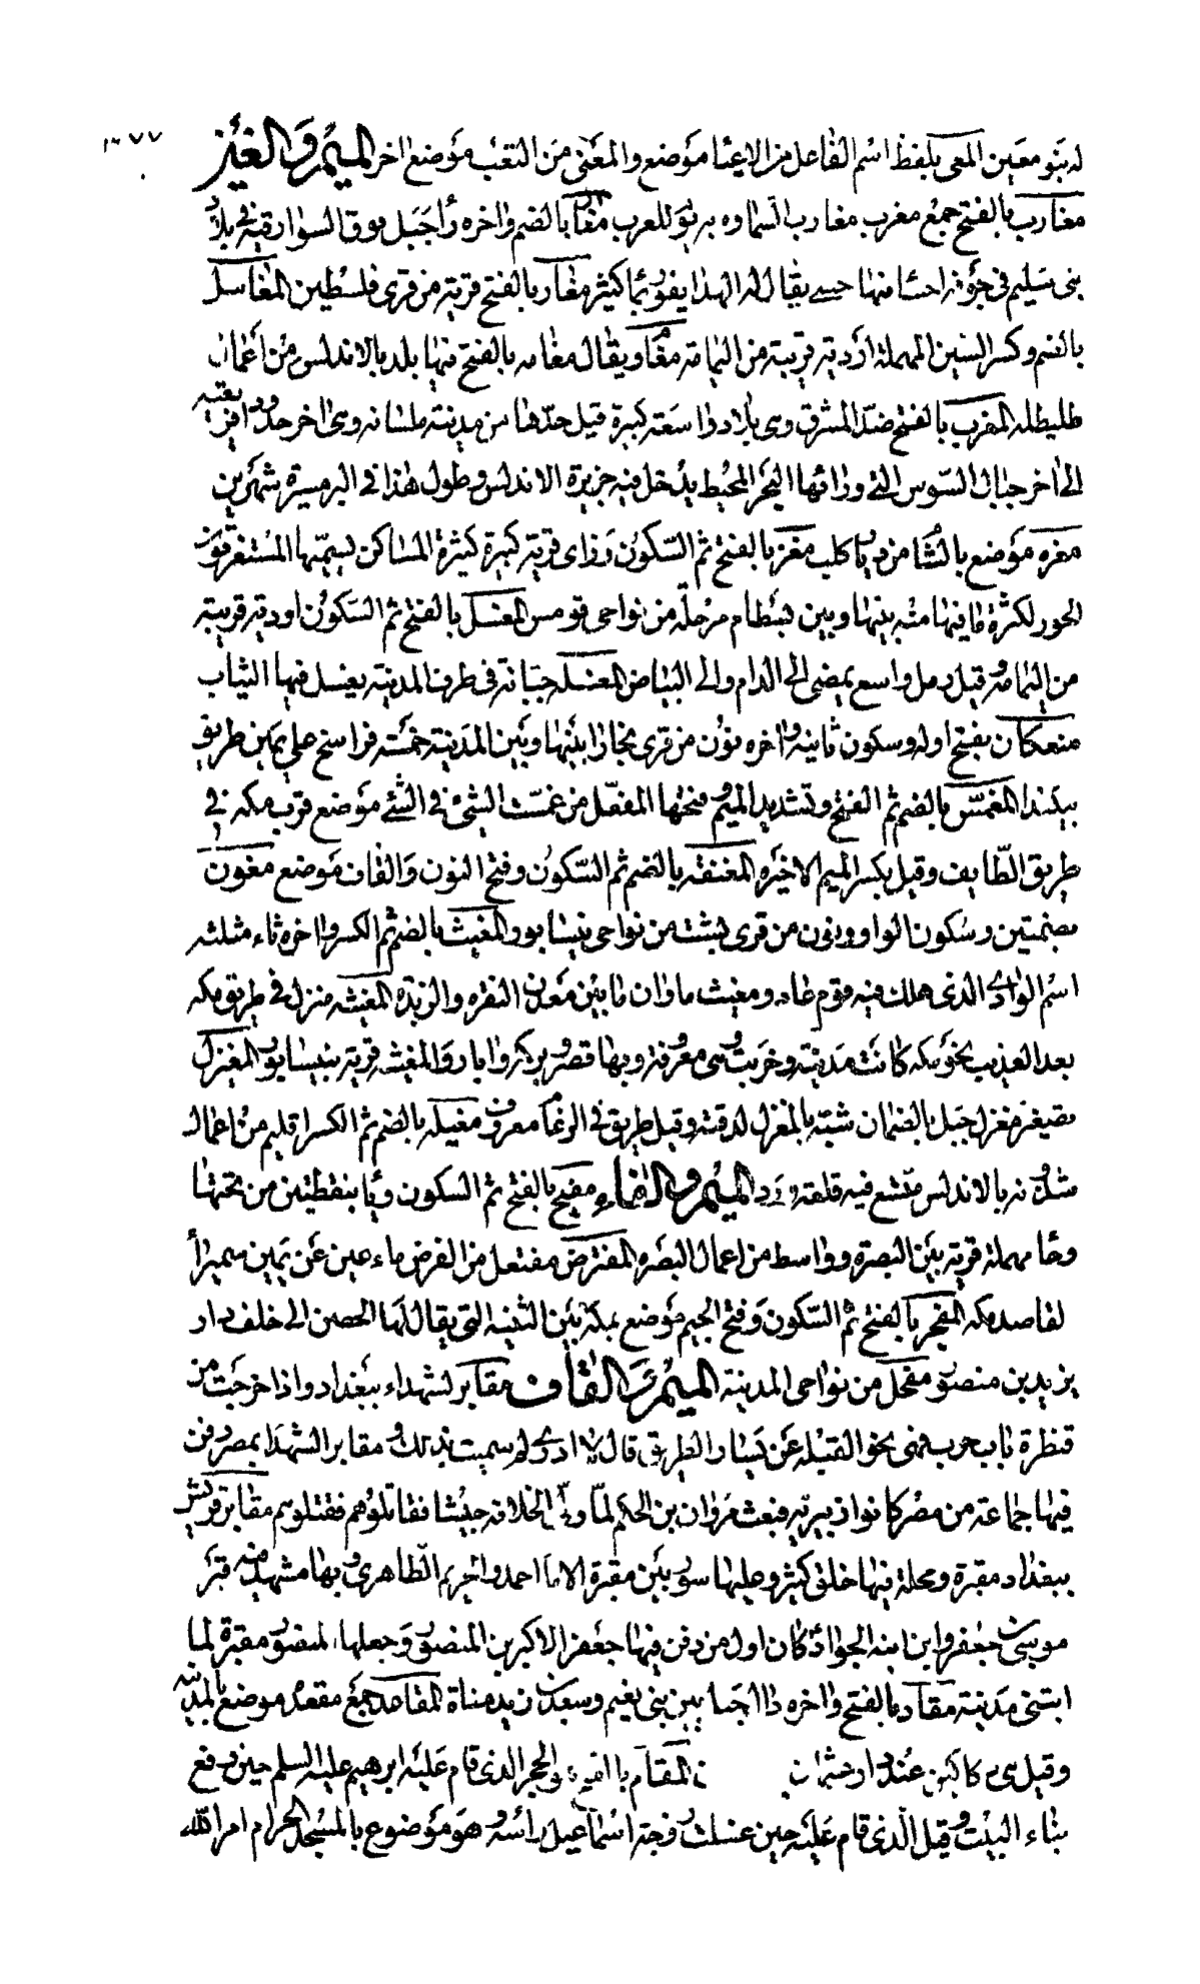 ١٣٧٧
له بنو معين المعى بلفظ اسم الفاعل من الاعيا موضع والمعنى من التعب موضع اخر الميم والغين
مغارب بالفتح جمع مغرب مغارب السماوه بريه للعرب مغار بالضم واخره را جبل فوق السوارقيه فى بلاد
بنى سليم فى جوفه احسا منها حسى يقال له الهدار يفور بما كثير مغار بالفتح قرية من قرى فلسطين المغاسل
بالضم وكسر السين المهملة اودية قريبة من اليمامة مغام ويقال مغامه بالفتح فيها بلد بالاندلس من اعمال
طليطله المغرب بالفتح ضد المشرق وهى بلاد واسعة كبيرة قيل حدها من مدينة مليانه وهى اخر حدود افريقية
الى اخر جبال السوس التى وراها البحر المحيط يدخل فيه جزيرة الاندلس وطول هذا فى البر مسيرة شهرين
مغره موضع بالشام من ديار كلب مغز بالفتح ثم السكون وزاى قرية كبيرة كثيرة المساكن يسميها المستعربون
الحور لكثرة ما فيها منه بينها وبين بسطام مرحلة من نواحى قومس المغسل بالفتح ثم السكون اودية قريبة
من اليمامة وقيل رمل واسع يمضى الى الدام والى البياض المغسلة جبانة فى طرف المدينة يغسل فيها الثياب
مغكان بفتح اوله وسكون ثانيه واخره نون من قرى بخارا بينها وبين المدينة خمسة فراسخ على يمين طريق
بيكند المغمس بالضم ثم الفتح وتشديد الميم وفتحها المفعل من غمست الشئ فى الشئ موضع قرب مكه فى
طريق الطايف وقيل بكسر الميم الاخيره المغنقه بالضم ثم السكون وفتح النون والقاف موضع مغون
بضمتين وسكون الواو ونون من قرى بشت من نواحى نيسابور المغيث بالضم ثم الكسر واخره ثاء مثلثه
اسم الوادى الذى هلك فيه قوم عاد ومغيث ماوان ما بين معدن النقره والربذه المغيثه منزل فى طريق مكه
بعد العذيب نحو مكه كانت مدينة وخربت وهى معروفة وبها قصور وبرك وابار والمغيثه قرية بنيسابور المغيزل
تصغير مغزل جبل بالضمان شبه بالمغزل لدقته وقيل طريق فى الرغام معروف مغيله بالضم ثم الكسر اقليم من اعمال
شذونه بالاندلس متسع فيه قلعة ورد الميم والفاء مفتح بالفتح ثم السكون ويا بنقطتين من تحتها
وحا مهملة قرية بين البصرة وواسط من اعمال البصره المفترض مفتعل من الفرض ماء عين عن يمين سميرا
لقاصد مكه المفجر بالفتح ثم السكون وفتح الجيم موضع بمكة بين الثنيه التى يقال لها الحصن الى خلف دار
يزيد بن منصور مفحل من نواحى المدينة الميم والقاف مقابر الشهداء ببغداد واذا خرجت من
قنطرة باب حرب فهى نحو القبله عن يسار الطريق قال لا ادرى لم سميت بذلك ومقابر الشهدا بمصر دفن
فيها جماعة من مصر كانوا زبيريه فبعث مروان بن الحكم لما ولى الخلافه جيشا فقاتلوهم فقتلوهم مقابر قريش
ببغداد مقبرة ومحلة فيها خلق كثير وعليها سور بين مقبرة الامام احمد والحريم الطاهرى وبها مشهد فيه قبر
موسى بن جعفر وابن ابنه الجواد كان اول من دفن فيها جعفر الاكبر بن المنصور وجعلها المنصور مقبرة لما
ابتنى مدينة مقاد بالفتح واخره دال جبا بين بنى فقيم وسعد بن زيد مناة المقاعد جمع مقعد موضع بالمدينة
وقيل هى دكاكين عند دار عثمان المقام بالفتح والحجر الذى قام عليه ابرهيم عليه السلم حين رفع
بناء البيت وقيل الذى قام عليه حين غسلت زوجة اسماعيل راسه وهو موضوع بالمسجد الحرام امر الله